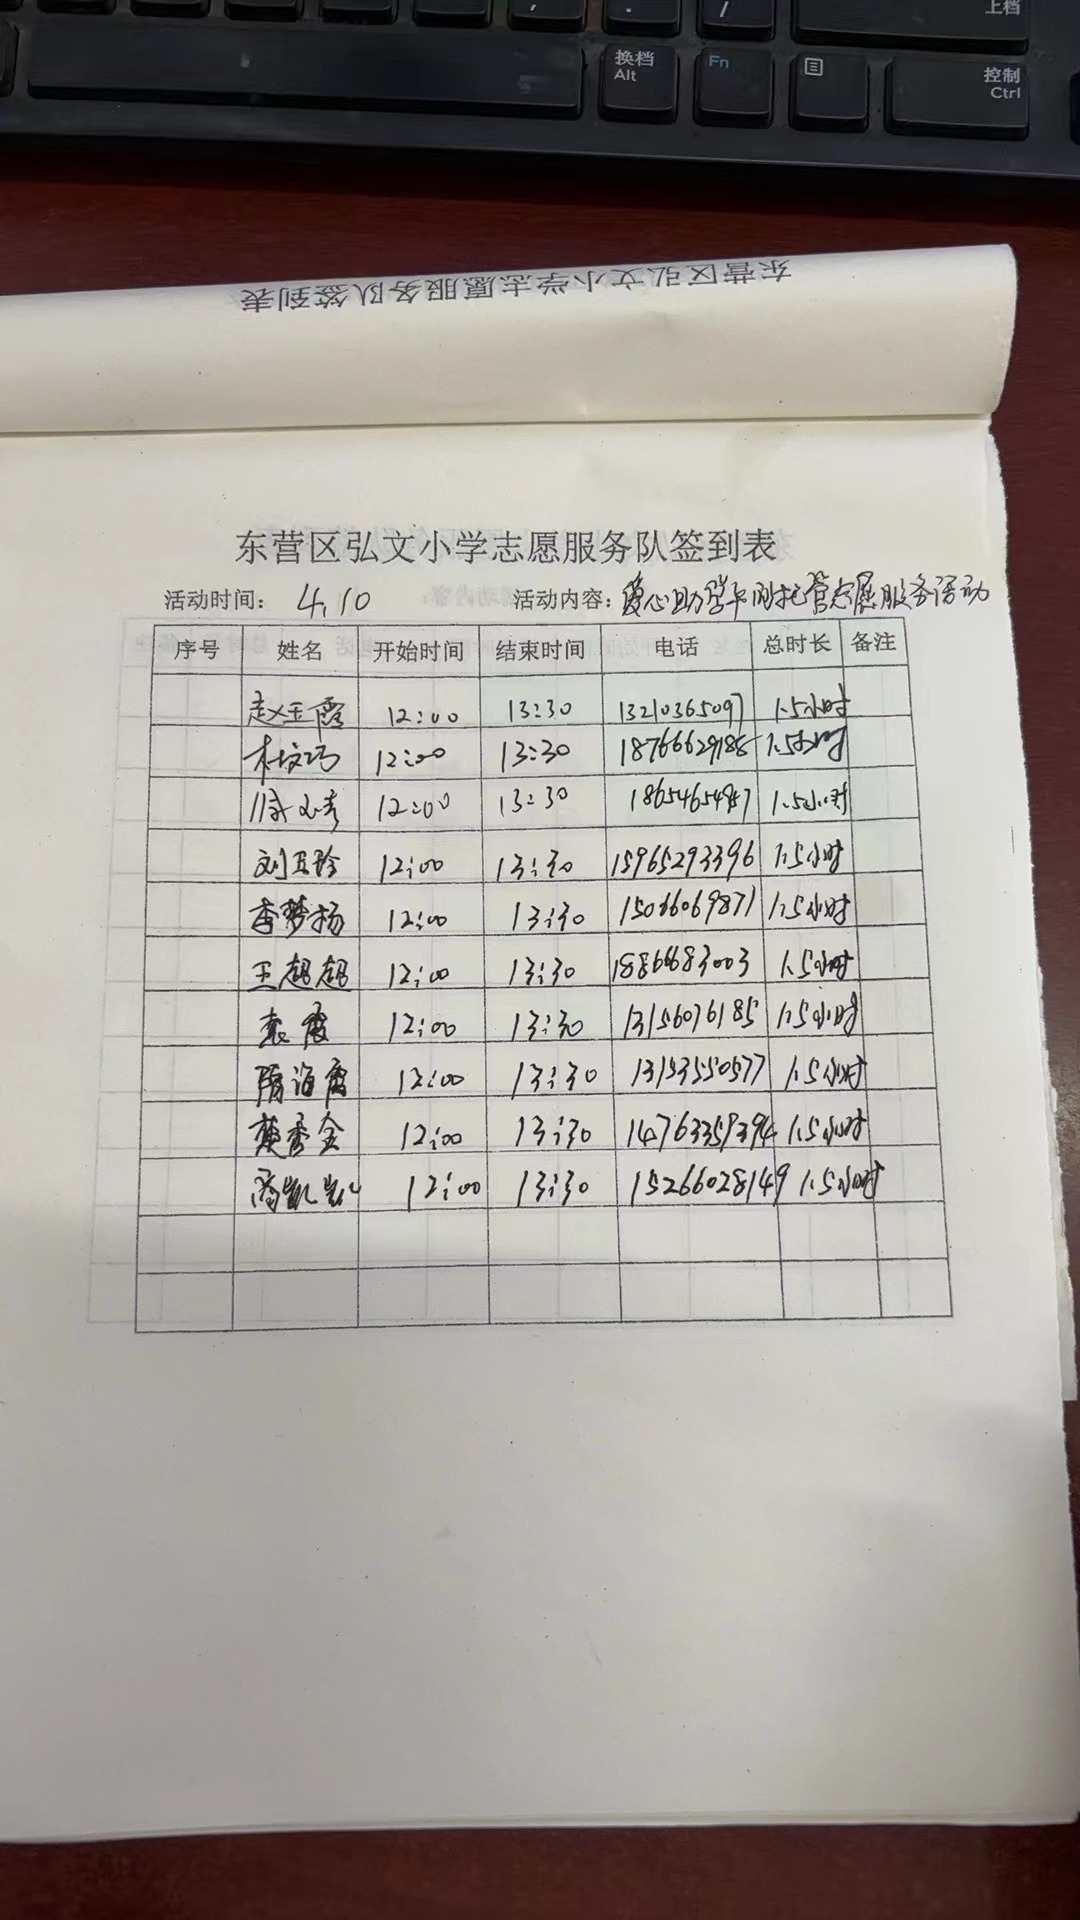 上档
换档
Alt
Fn
控制
Ctrl
东营区弘文小学志愿服务队签到表
东营区弘文小学志愿服务队签到表
活动时间： 4.10 活动内容：爱心助学午间托管志愿服务活动
序号 姓名 开始时间 结束时间 电话 总时长 备注
赵玉霞 12:00 13:30 13210365097 1.5小时
12:00 13:30 18766629185 1.5小时
12:00 13:30 1.5小时
刘玉玲 12:00 13:30 15965293396 1.5小时
李梦杨 12:00 13:30 15066069871 1.5小时
王超超 12:00 13:30 18866683003 1.5小时
袁霞 12:00 13:30 13156076185 1.5小时
隋海霞 12:00 13:30 13153550577 1.5小时
黄秀金 12:00 13:30 14763359394 1.5小时
凯凯 12:00 13:30 15266028149 1.5小时